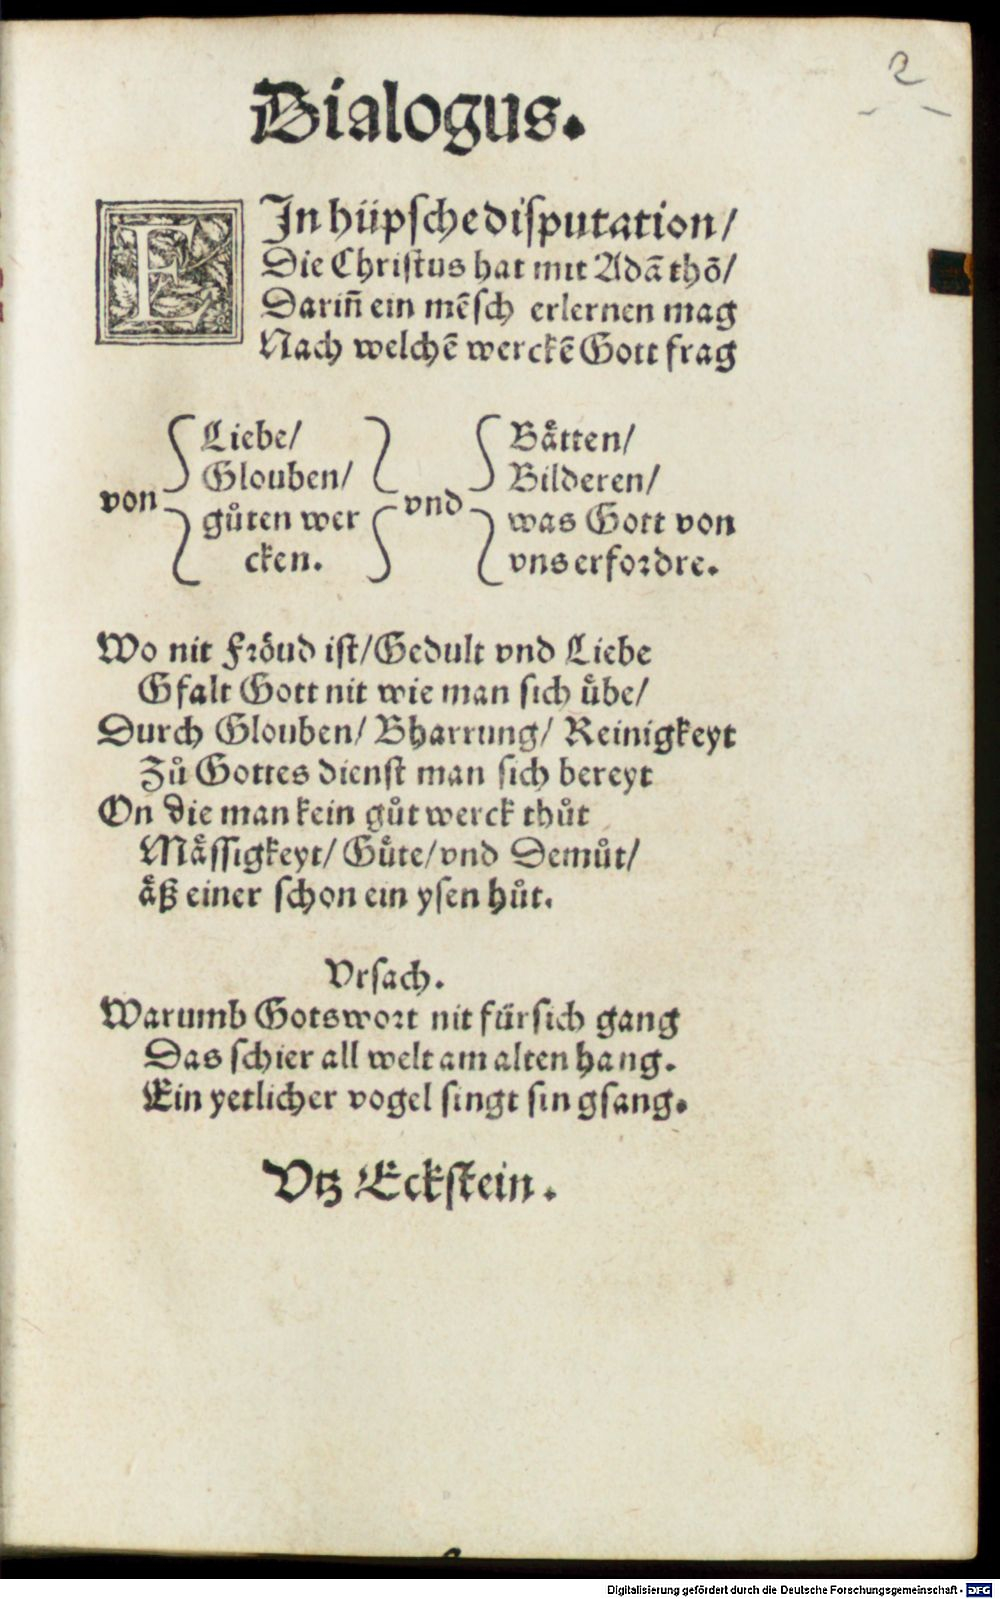 2
Dialogus.
EJn hüpsche disputation/
Die Christus hat mit Adā thō/
Dariñ ein mēsch erlernen mag
Nach welchē werckē Gott frag
von
Liebe/
Glouben/
gůten wer
cken.
vnd
Baͤtten/
Bilderen/
was Gott von
vns erfordre.
Wo nit Froͤud ist/Gedult vnd Liebe
Gfalt Gott nit wie man sich uͤbe/
Durch Glouben/ Bharrung/ Reinigkeyt
Zů Gottes dienst man sich bereyt
On die man kein gůt werck thůt
Maͤssigkeyt/ Guͤte/vnd Demůt/
aͤß einer schon ein ysen hůt.
Vrsach.
Warumb Gotswort nit für sich gang
Das schier all welt am alten hang.
Ein yetlicher vogel singt sin gsang.
Vtz Eckstein.
Digitalisierung gefördert durch die Deutsche Forschungsgemeinschaft - DFG